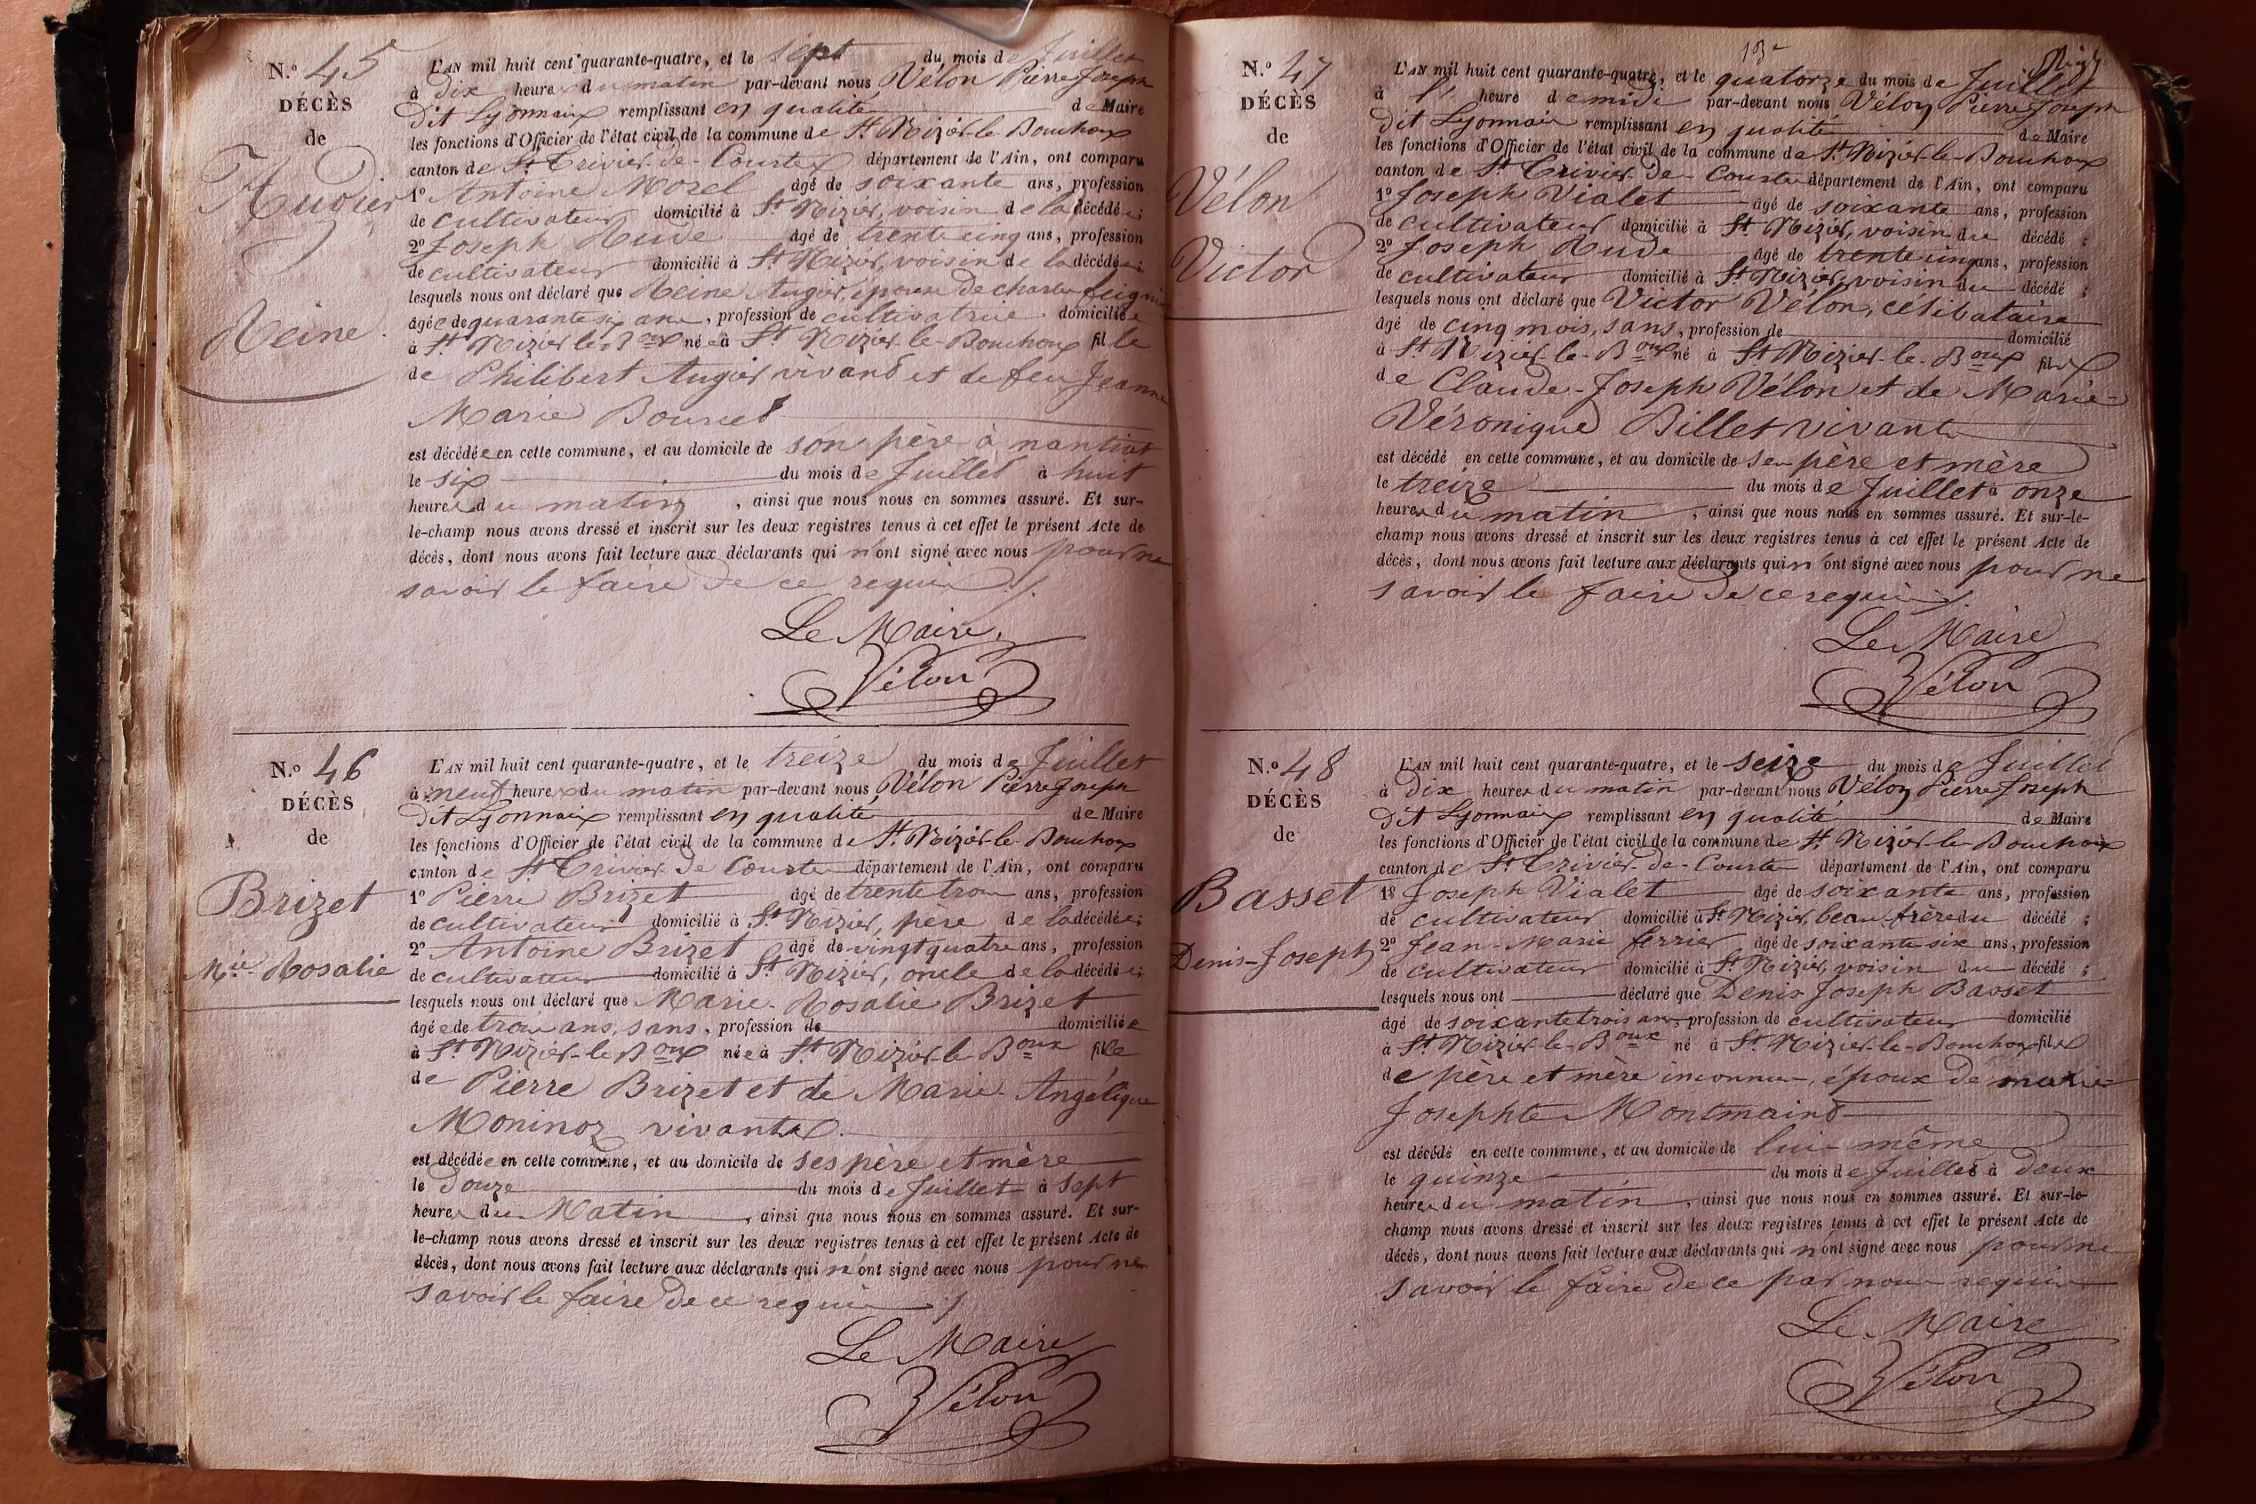 N.º 45
DÉCÈS
de
Reine
L'AN mil huit cent quarante-quatre, et le sept du mois de Juillet
à dix heures du matin par-devant nous Vélon Pierre Joseph
dit Lyonnais remplissant en qualité de Maire
les fonctions d'Officier de l'état civil de la commune de St. Nizier-le-Bouchoux
canton de St. Trivier-de-Courtes département de l'Ain, ont comparu
1º Antoine Morel âgé de soixante ans, profession
de cultivateur domicilié à St. Nizier, voisin de la décédée;
2º Joseph Rude âgé de trente cinq ans, profession
de cultivateur domicilié à St. Nizier, voisin de la décédée;
lesquels nous ont déclaré que Reine Augier, épouse de charles
âgée de quarante six ans, profession de cultivatrice domiciliée
à St. Nizier-le-Boux née à St. Nizier-le-Bouchoux fille
de Philibert Augier vivant et de feu Jeanne
Marie
est décédée en cette commune, et au domicile de son père à
le six du mois de Juillet à huit
heures du matin, ainsi que nous nous en sommes assuré. Et sur-
le-champ nous avons dressé et inscrit sur les deux registres tenus à cet effet le présent Acte de
décès, dont nous avons fait lecture aux déclarants qui n'ont signé avec nous pour ne
savoir le faire de ce requis ./.
Le Maire,
Vélon
N.º 46
DÉCÈS
de
Brizet
Mie. Rosalie
L'AN mil huit cent quarante-quatre, et le treize du mois de Juillet
à neuf heures du matin par-devant nous Vélon Pierre Joseph
dit Lyonnais remplissant en qualité de Maire
les fonctions d'Officier de l'état civil de la commune de St. Nizier-le-Bouchoux
canton de St. Trivier-de-Courtes département de l'Ain, ont comparu
1º Pierre Brizet âgé de trente trois ans, profession
de cultivateur domicilié à St. Nizier, père de la décédée;
2º Antoine Brizet âgé de vingt quatre ans, profession
de cultivateur domicilié à St. Nizier, oncle de la décédée;
lesquels nous ont déclaré que Marie-Rosalie Brizet
âgée de trois ans, sans, profession de domiciliée
à St. Nizier-le-Boux née à St. Nizier-le-Boux fille
de Pierre Brizet et de Marie-Angélique
Moninoz vivants.
est décédée en cette commune, et au domicile de ses père et mère
le douze du mois de Juillet à sept
heures du Matin, ainsi que nous nous en sommes assuré. Et sur-
le-champ nous avons dressé et inscrit sur les deux registres tenus à cet effet le présent Acte de
décès, dont nous avons fait lecture aux déclarants qui n'ont signé avec nous pour ne
savoir le faire de ce requis ./
Le Maire
Vélon
13e
N.º 47
DÉCÈS
de
Vélon
Victor
L'AN mil huit cent quarante-quatre, et le quatorze du mois de Juillet
à 1' heure de midi par-devant nous Vélon Pierre Joseph
dit Lyonnais remplissant en qualité de Maire
les fonctions d'Officier de l'état civil de la commune de St. Nizier-le-Bouchoux
canton de St. Trivier-de-Courtes département de l'Ain, ont comparu
1º Joseph Vialet âgé de soixante ans, profession
de cultivateur domicilié à St. Nizier, voisin du décédé;
2º Joseph Rude âgé de trente cinq ans, profession
de cultivateur domicilié à St. Nizier, voisin du décédé;
lesquels nous ont déclaré que Victor Vélon, célibataire
âgé de cinq mois, sans, profession de domicilié
à St. Nizier-le-Boux né à St Nizier-le-Boux fils
de Claude-Joseph Vélon et de Marie-
Véronique Billet vivants
est décédé en cette commune, et au domicile de ses père et mère
le treize du mois de Juillet à onze
heures du matin, ainsi que nous nous en sommes assuré. Et sur-le-
champ nous avons dressé et inscrit sur les deux registres tenus à cet effet le présent Acte de
décès, dont nous avons fait lecture aux déclarants qui n'ont signé avec nous pour ne
savoir le faire de ce requis ./.
Le Maire
Vélon
N.º 48
DÉCÈS
de
Basset
Denis-Joseph
L'AN mil huit cent quarante-quatre, et le seize du mois de Juillet
à dix heures du matin par-devant nous Vélon Pierre Joseph
dit Lyonnais remplissant en qualité de Maire
les fonctions d'Officier de l'état civil de la commune de St. Nizier-le-Bouchoux
canton de St. Trivier-de-Courtes département de l'Ain, ont comparu
1º Joseph Vialet âgé de soixante ans, profession
de cultivateur domicilié à St. Nizier, beau-frère du décédé;
2º Jean-Marie Ferrier âgé de soixante six ans, profession
de cultivateur domicilié à St. Nizier, voisin du décédé;
lesquels nous ont déclaré que Denis Joseph Basset
âgé de soixante trois ans, profession de cultivateur domicilié
à St. Nizier-le-Boux né à St. Nizier-le-Bouchoux fils
de père et mère inconnus, époux de marie
Josephte Montmaind
est décédé en cette commune, et au domicile de lui même
le quinze du mois de Juillet à deux
heures du matin, ainsi que nous nous en sommes assuré. Et sur-le-
champ nous avons dressé et inscrit sur les deux registres tenus à cet effet le présent Acte de
décès, dont nous avons fait lecture aux déclarants qui n'ont signé avec nous pour ne
savoir le faire de ce par nous requis
Le Maire
Vélon